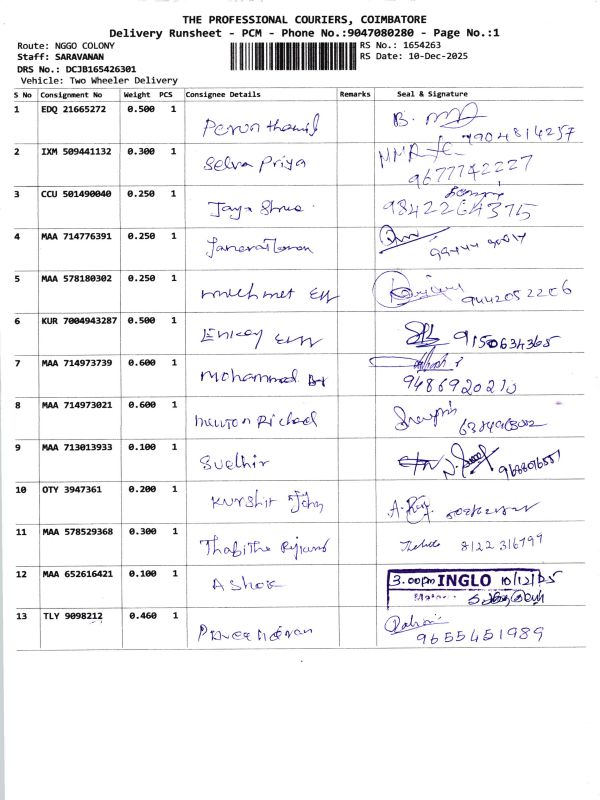 THE PROFESSIONAL COURIERS, COIMBATORE
Delivery Runsheet - PCM - Phone No.:9047080280 - Page No.:1
Route: NGGO COLONY
RS No.: 1654263
Staff: SARAVANAN
RS Date: 10-Dec-2025
DRS No.: DCJB165426301
Vehicle: Two Wheeler Delivery
S No Consignment No Weight PCS Consignee Details Remarks Seal & Signature
1 EDQ 21665272 0.500 1 B.
7904814257
2 IXM 509441132 0.300 1 Selva Priya
9677742227
3 CCU 501490040 0.250 1 Jaya Shree
9842264375
4 MAA 714776391 0.250 1
5 MAA 578180302 0.250 1 9442052206
6 KUR 7004943287 0.500 1 9150634365
7 MAA 714973739 0.600 1 Mohammed
9486920210
8 MAA 714973021 0.600 1 Newton Richard
9 MAA 713013933 0.100 1 Sudhir
10 OTY 3947361 0.200 1 Kurshit
11 MAA 578529368 0.300 1 Thabitha 8122 316799
12 MAA 652616421 0.100 1 Ashok 3.00pm INGLO 10/12/25
13 TLY 9098212 0.460 1
9655451989